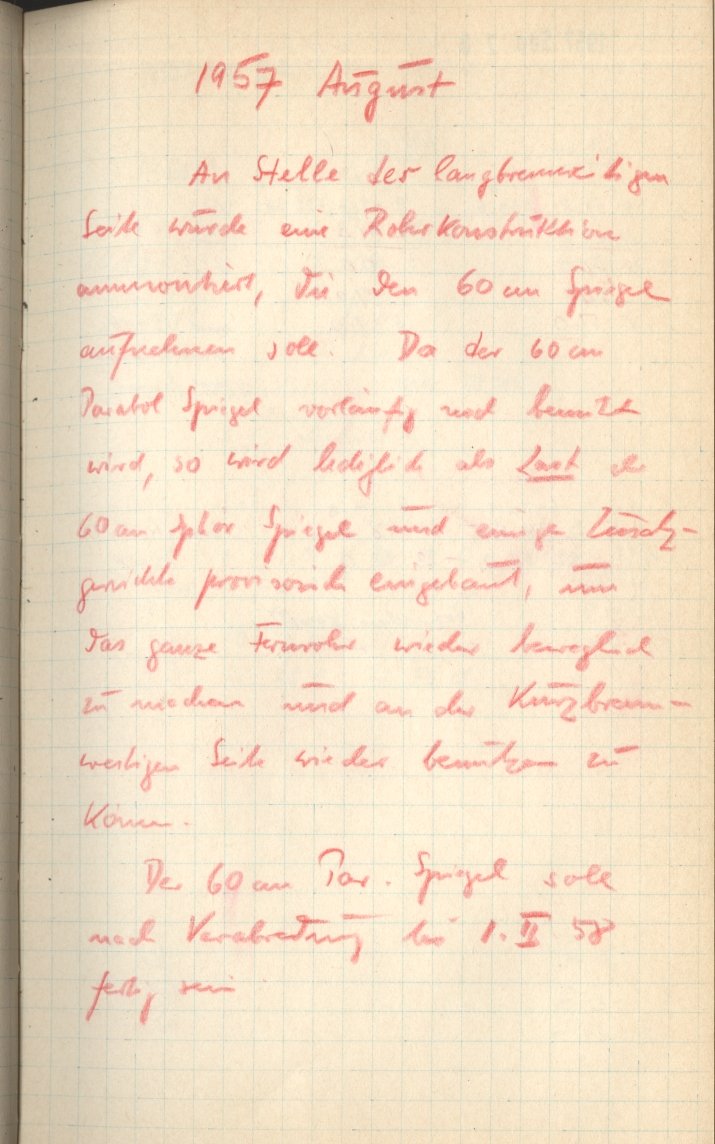 1957 August
An Stelle der langbrennweitigen
Seite wurde eine Rohrkonstruktion
anmontiert, die den 60 cm Spiegel
aufnehmen soll. Da der 60 cm
Parabol Spiegel vorläufig noch benutzt
wird, so wird lediglich als Last der
60 cm sphär Spiegel und einige Zusatz-
gewichte provisorisch eingebaut, um
das ganze Fernrohr wieder beweglich
zu machen und an der Kurzbrenn-
weitigen Seite wieder benutzen zu
können.
Der 60 cm Par. Spiegel soll
nach Verabredung bis 1. II 58
fertig sein